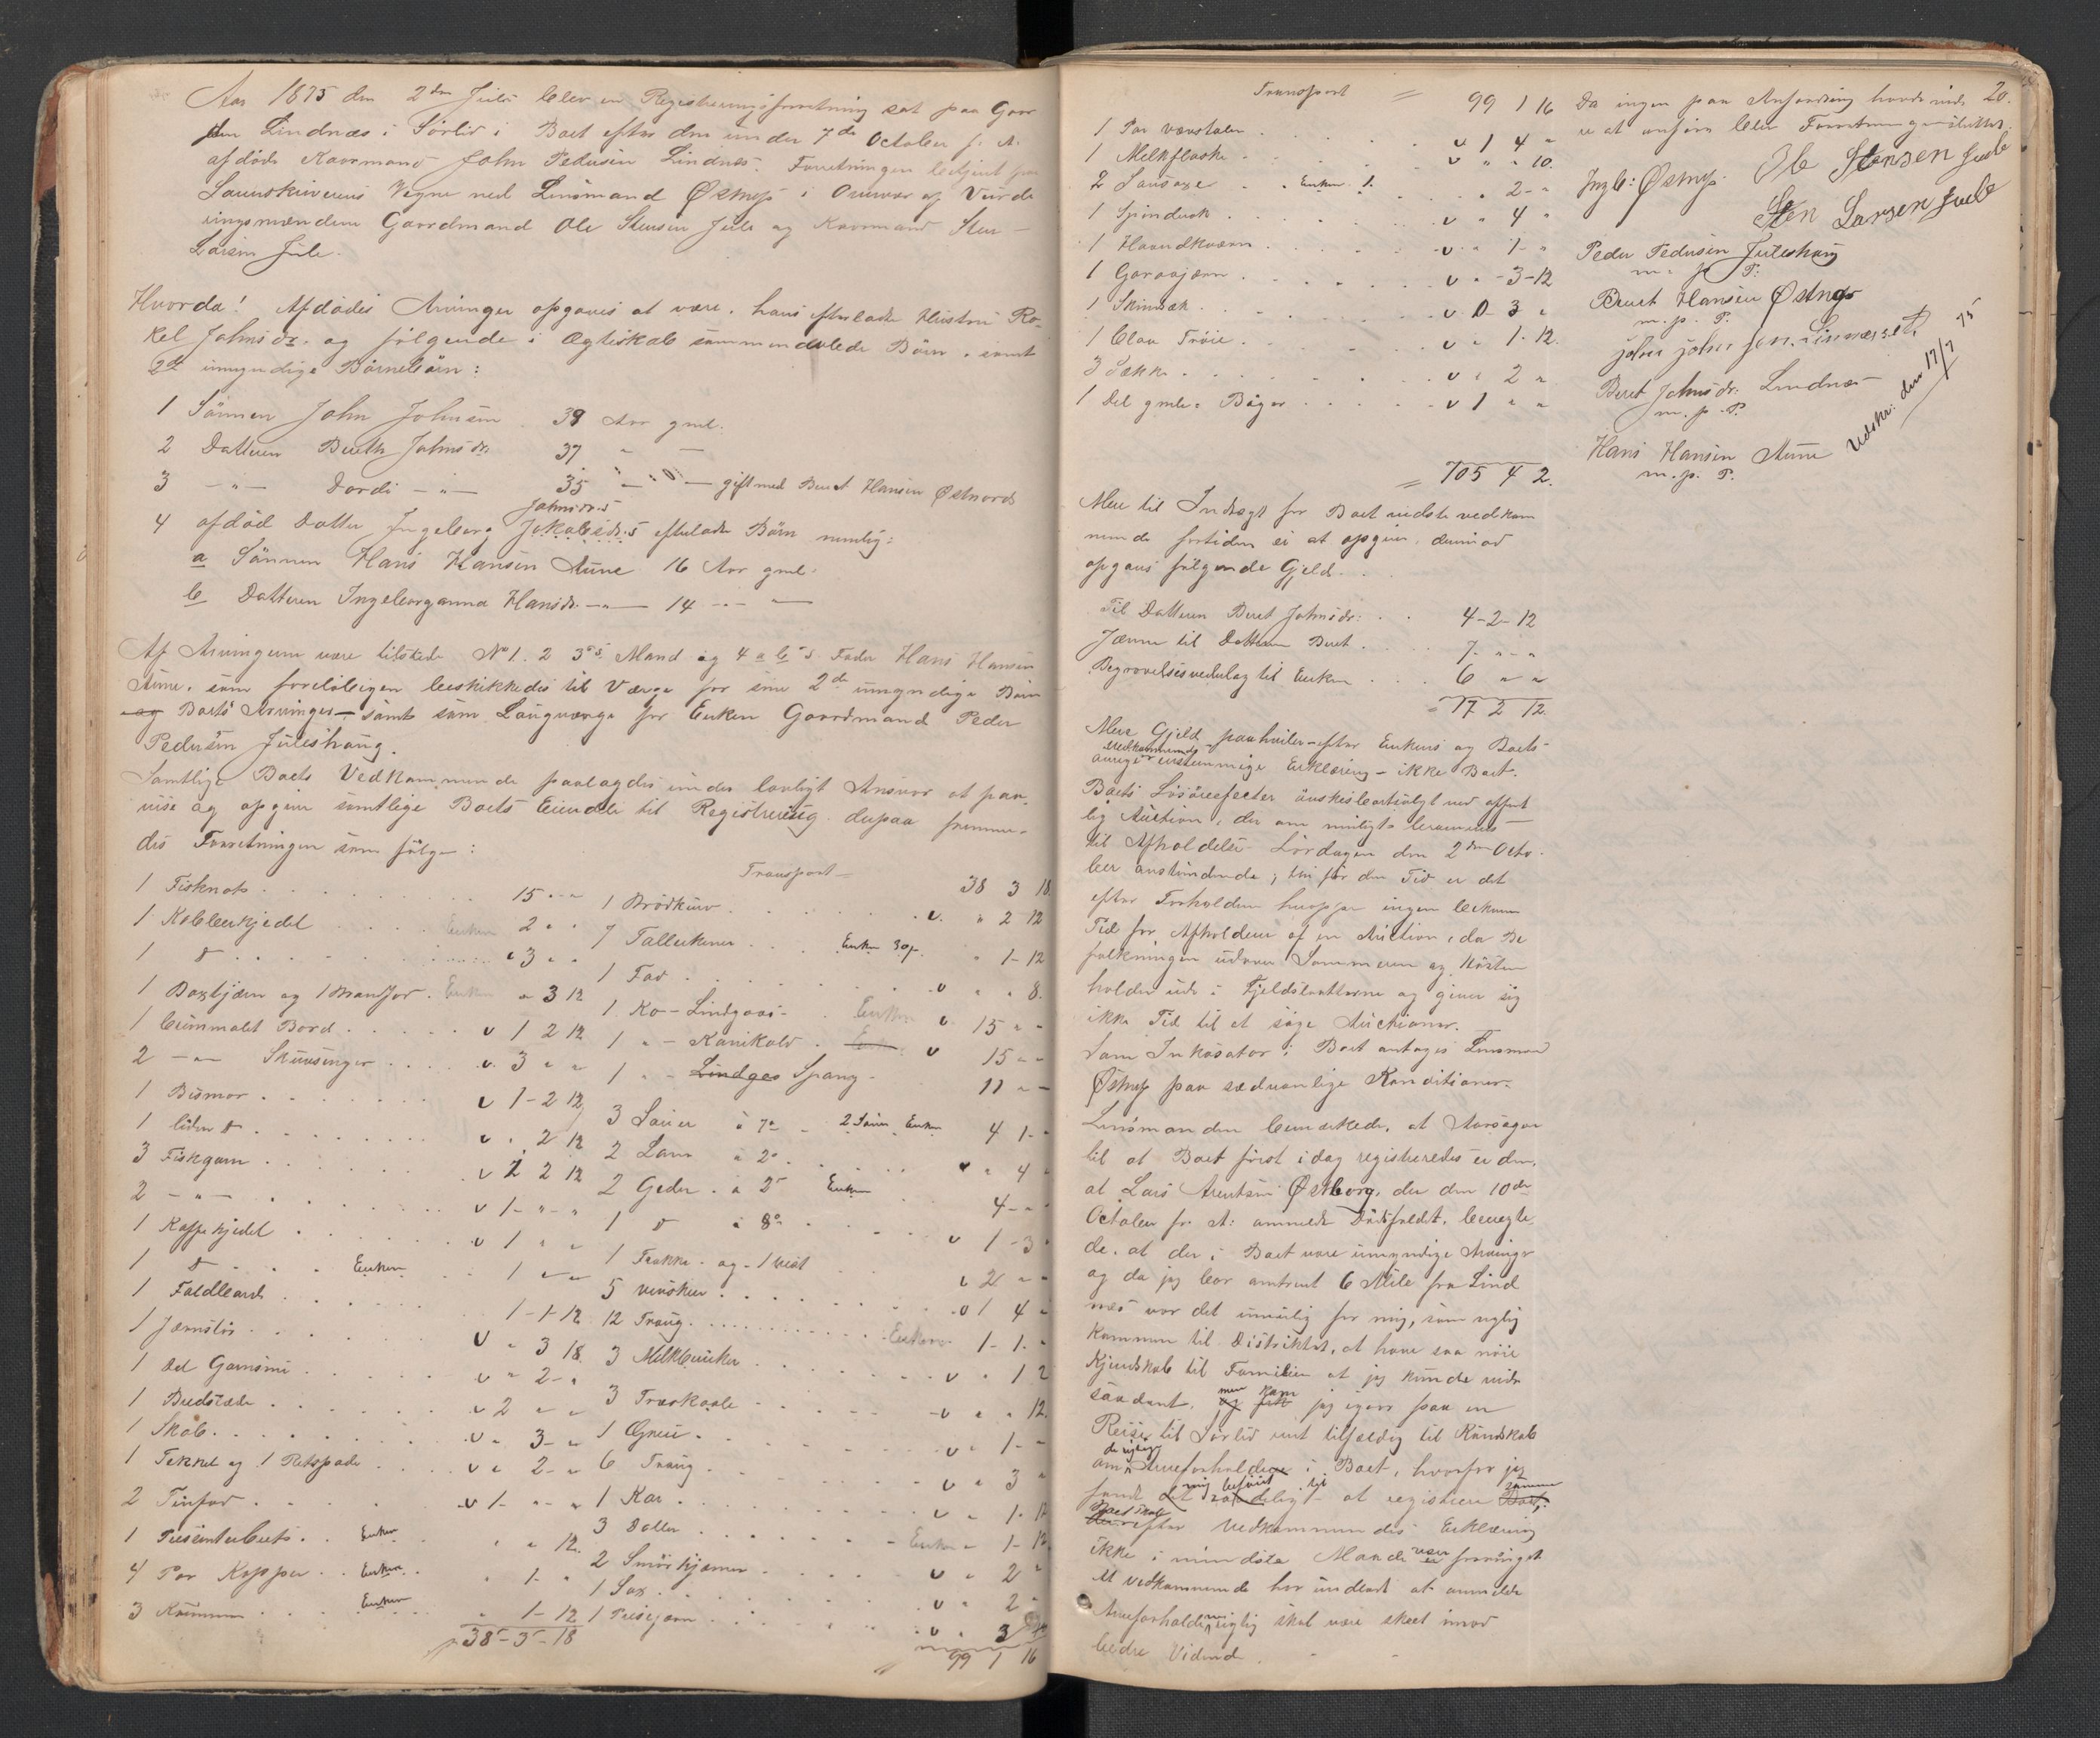 Aar 1875 den 2den Juli blev en Registreringsforretning sat paa Gaar
den Lindnæs i Sørlid i Boet efter den under 7de October f. A.
afdøde Kaarmand John Pedersen Lindnæs. Forretningen betjent paa
Sorenskriverens Vegne ved Lensmand Østnys i Overvær af Vurde
ringsmændene Gaardmand Ole Stensen Jule og Kaarmand Sten
Larsen Jule.
Hvorda! Afdødes Arvinger opgaves at være, hans efterladte Hustru Ra-
kel Johnsdr. og følgende i Ægteskab sammenavlede Børn, samt
2de umyndige Børnebørn:
1 Sønnen John Johnsen 39 Aar gml.
2 Datteren Bereth Johnsdr. 37 " —
3 —"— Dordi —"— 35 — " — gift med Berent Hansen Østnords
Johnsdr.s
4 afdød Datter Ingeborg Jakobsdr.s efterladte Børn nemlig:
a Sønnen Hans Hansen Aune 16 Aar gml.
b Datteren Ingeborganna Hansdr. —"— 14 --- —
Af Arvingerne vare tilstede No 1. 2 3's Mand og 4 a b's Fader Hans Hansen
Aune, som foreløbigen beskikkedes til Værge for sine 2de umyndige Børn
og Boets Arvinger – samt som Laugværge for Enken Gaardmand Peder
Pedersen Juleshaug.
Samtlige Boets Vedkommende paalagdes under lovligt Ansvar at paa-
vise og opgive samtlige Boets Eiendele til Registrering, derpaa fremme-
des Forretningen som følger:
1 Fisknot 15 - "
1 Kobberkjedel Enken 2 " "
1 d " 3 " "
1 Baxtjern og 1 Brandjor Enken " 3 12
1 Cummalet Bord v 1 2 12
2 —"— Skuvsenger v. 3 " "
1 Bismer v 1 - 2 12
1 liden d v " 2 12
3 Fiskgarn v 2 2 12
2 - " - v 1 - " - "
1 Kaffekjedel v 1 " "
1 d Enken 1 " "
1 Foldbord 1 - 1 - 12
1 Jernstør v " 3 18
1 Del Garnsni v " 2 - "
1 Budstæde v 2 " "
1 Skab v " 3 - "
1 Tekkel og 1 Retspade v " 2 - "
2 Tinfad v 1 - " - "
1 Enken " " 12
4 Par Kopper Enken " 1 - "
3 Enken " 1 - 12
38 - 3 - 18
Transport — 38 3 18
1 Brødkurv v. " 2 12
7 Tallerkener Enken 3 " 1 - 12
1 Fad v " " 8.
1 Ko - Lindgaas - Enken v 15 " -
1 " - Ranikolv Enken v 15 " -
1 " - Lindges Spang - 11 " -
3 Sauer à 7 2 Sauer Enken 4 1 - "
2 Lam à 2 v " 4 "
2 Geder à 2 Enken 4 - "
1 d à 8 v 1 - 3 "
1 Frakke og 1 vest v 2 " "
5 v 1 4 "
12 Traug Enken 1 - 1 - "
3 Melkbunker v " 1 2
3 Træskaale v " " 12
1 Gryde v " 1 - "
6 Traug v " 3 "
1 Kar v " 1 - 12
3 Boller Enken " 1 - 12
2 Smørkjærner v " 2 "
1 Sax v " 2 -
1 v " 3
99 1 16
Transport = 99 1 16
1 Par vævstoler v 1 4 "
1 Melkflaske v " " 10.
2 Sausaxe Enken 1. " 2 - "
1 Spinderok v " 4 "
1 Haandkværn v " 1 - "
1 Garaajærn v " - 3 - 12
1 Skindsæk v 0 - 3 "
1 Blaa Trøie v " 1 - 12.
3 Sække v " 2 "
1 Del gmle. Bøger v 1 " "
= 105 4 2.
Mere til Indtægt for Boet vidste vedkom
mende fortiden ei at opgive, derimod
opgaves følgende Gjeld.
Til Datteren Beret Johnsdr: 4 - 2 - 12
Jærne til Datteren Beret 7 - " - "
Begravelsesvederlag til Enken 6 " "
= 17 2 12.
Mere Gjeld paahviler – efter Enkens og Boets
Vedkommendes
øvrige enstemmige Erklæring – ikke Boet.
Boets Løsøreefecter ønskes bortsolgt ved offent
lig Auction, der om muligt berammes
til Afholdelse Lørdagen den 2den Octo-
ber anstundende; thi før den Tid er det
efter Forholdene heroppe ingen bekvem
Tid for Afholdere af en Auction, da Be
folkningen udover Sommeren og Høsten
holder ude i Fjeldslaatterne og giver sig
ikke Tid til at søge Auctioner.
Som Inkasator i Boet antages Lensmand
Østnys paa sædvanlige Konditioner.
Lensmanden bemærkede, at Aarsagen
til at Boet først idag registreredes er den,
at Lars Arentsen Østborg, der den 10de
October f. A: anmeldte Dødsfaldet, benegte-
de, at der i Boet vare umyndige Arvinger
og da jeg bor omtrent 6 Mile fra Lind
næs var det umulig for mig, som nylig
kommen til Distriktet, at have saa nøie
Kjendskab til Familien at jeg kunde vide
men kom
saadant, og fik jeg igaar paa en
Reise til Sørlid rent tilfældig til Kundskab
de rigtige
om Arveforholdene i Boet, hvorfor jeg
mig beføiet til
fandt det at registrere Boet, samme
Boet skal
efter Vedkommendes Erklæring
ikke i mindste Maade være forringet
At vedkommende har undladt at anmelde
Arveforholdene rigtig skal være skeet imod
bedre Vidende.
20.
Da ingen paa Anfordring havde mere
at anføre blev Forretningen sluttet.
Ingb: Østnys. Ole Stensen Juule
Sten Larsen Juule
Peder Pedersen Juleshaug
m. p. P.
Berent Hansen Østnys
m. p. P.
john johnsen Linnæset
Beret Johnsdr. Lindnæs
m. p. P.
Hans Hansen Aune
m. p. P.
Udskr: den 17/7 75